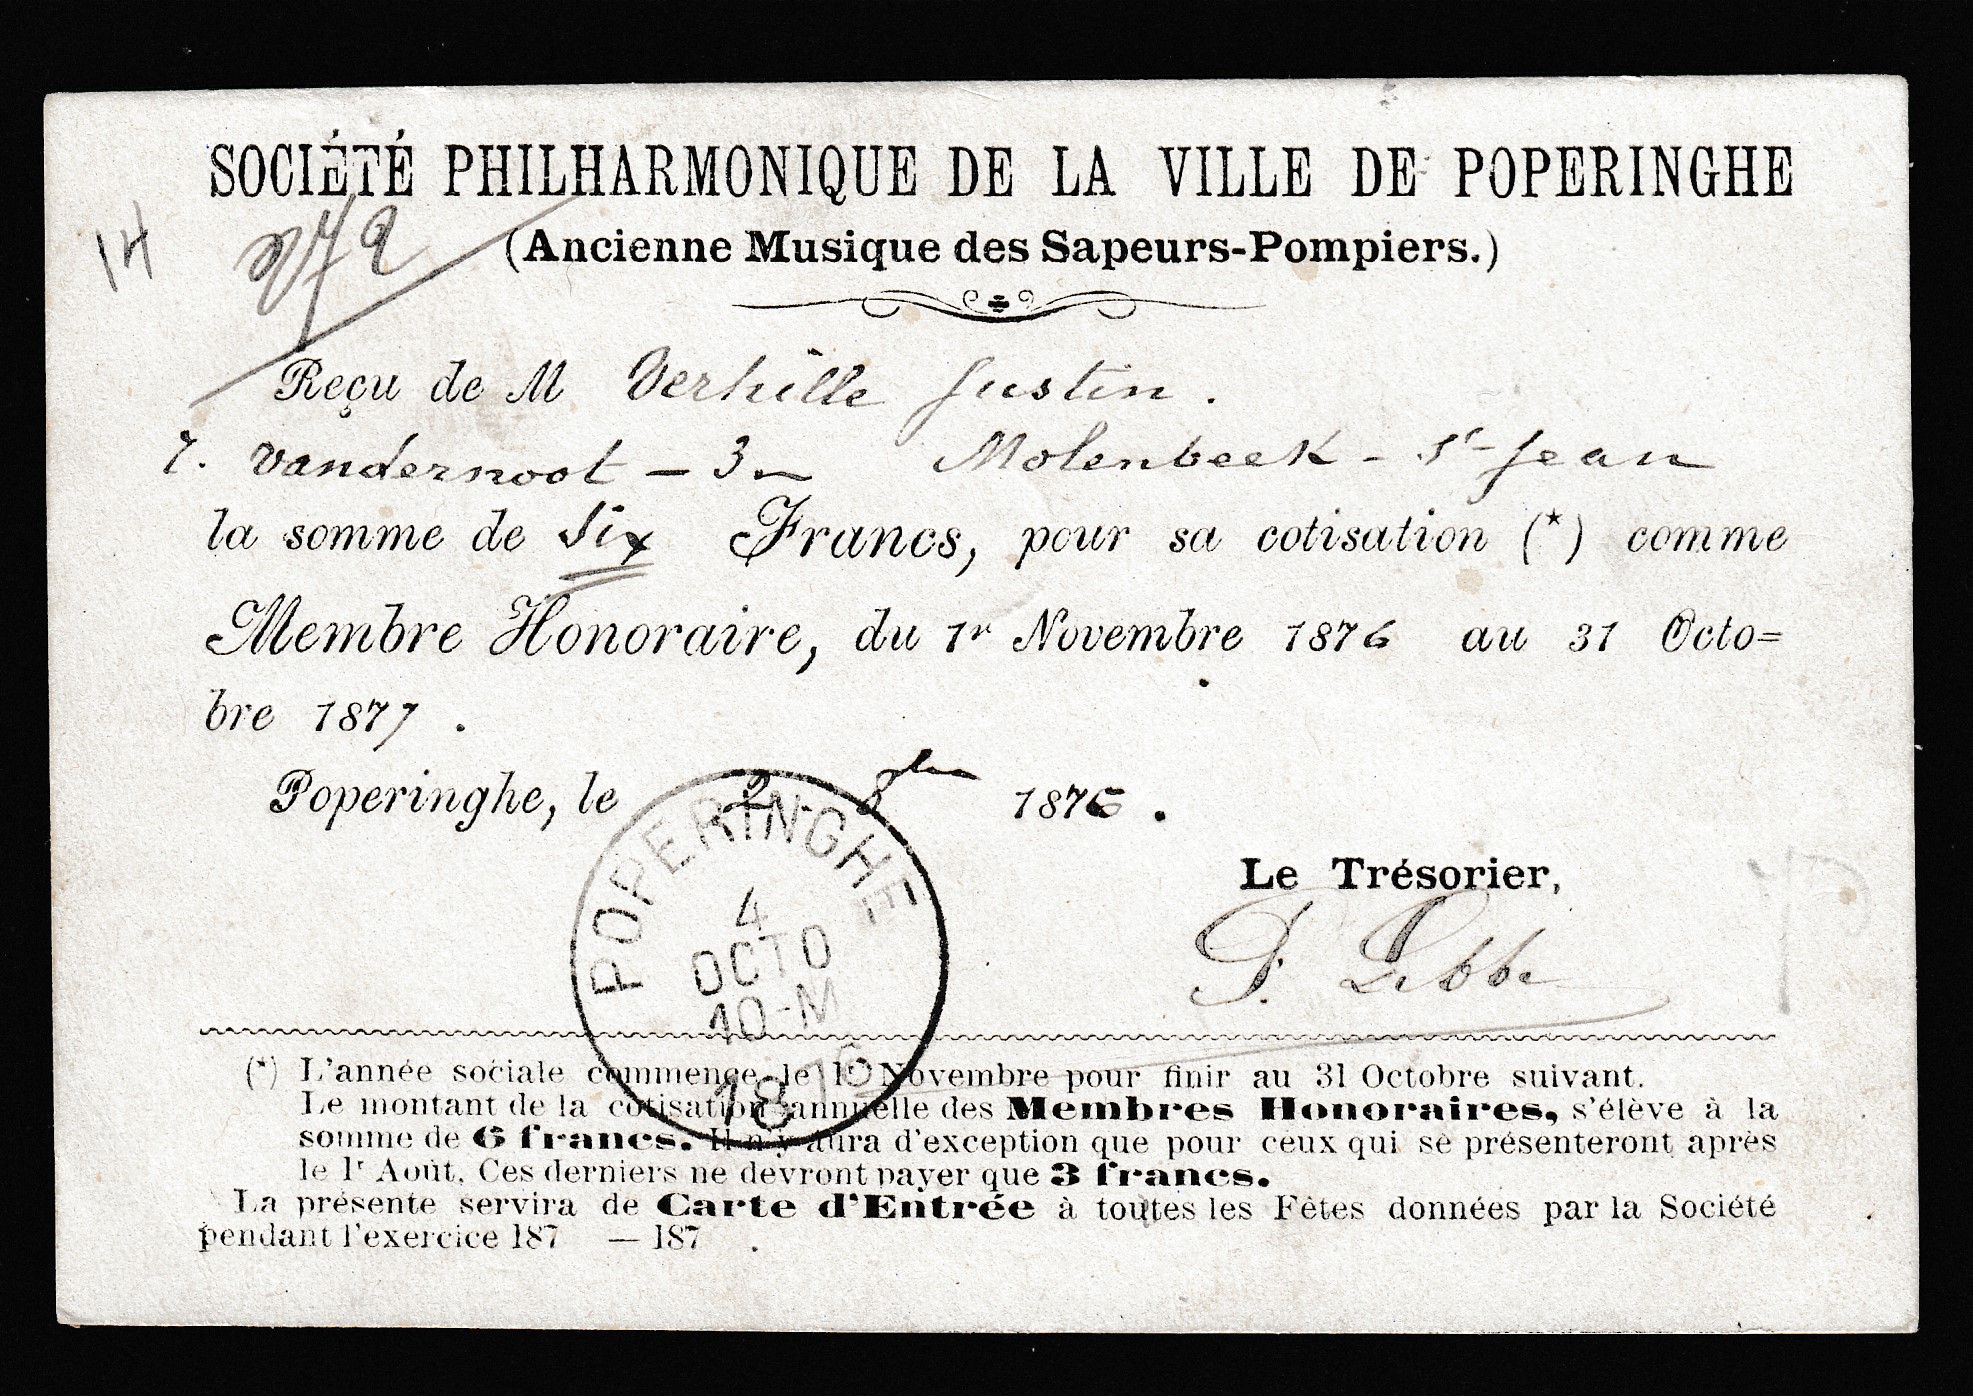 SOCIÉTÉ PHILHARMONIQUE DE LA VILLE DE POPERINGHE
14
(Ancienne Musique des Sapeurs-Pompiers.)
Reçu de M Verhille Justin.
7. Vandernoot – 3 – Molenbeek - St-Jean
la somme de Six Francs, pour sa cotisation (*) comme
Membre Honoraire, du 1r Novembre 1876 au 31 Octo=
bre 1877.
Poperinghe, le 2 8bre 1876.
Le Trésorier,
POPERINGHE
4
OCTO
10-M
1876
(*) L'année sociale commence le 1r Novembre pour finir au 31 Octobre suivant.
Le montant de la cotisation annuelle des Membres Honoraires, s'élève à la
somme de 6 francs. Il n'y aura d'exception que pour ceux qui se présenteront après
le 1r Août. Ces derniers ne devront payer que 3 francs.
La présente servira de Carte d'Entrée à toutes les Fêtes données par la Société
pendant l'exercice 187 — 187 .